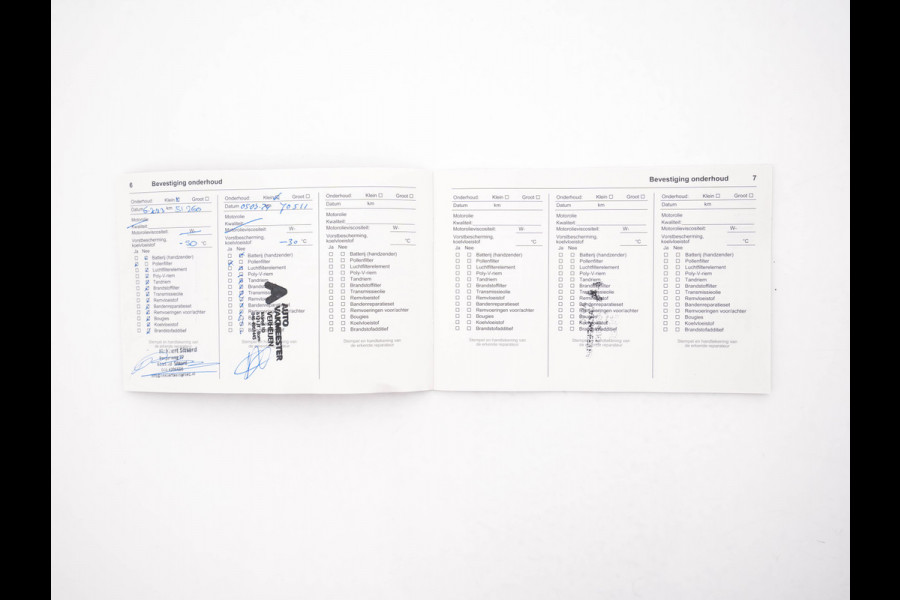 6 Bevestiging onderhoud
Onderhoud: Klein Groot
Datum km 51260
Motorolie
Kwaliteit:
Motorolieviscositeit:
Vorstbescherming,
koelvloeistof °C
Ja Nee
Batterij (handzender)
Pollenfilter
Luchtfilterelement
Poly-V-riem
Tandriem
Brandstoffilter
Transmissieolie
Remvloeistof
Bandenreparatieset
Remvoeringen voor/achter
Bougies
Koelvloeistof
Brandstofadditief
Stempel en handtekening van
de erkende reparateur
Onderhoud: Klein Groot
Datum 70511
Motorolie
Kwaliteit:
Motorolieviscositeit: W-
Vorstbescherming,
koelvloeistof -30 °C
Ja Nee
Batterij (handzender)
Pollenfilter
Luchtfilterelement
Poly-V-riem
Tandriem
AUTO
VAKMEESTER
VERHEIJEN
Onderhoud: Klein Groot
Datum km
Motorolie
Kwaliteit:
Motorolieviscositeit: W-
Vorstbescherming,
koelvloeistof °C
Ja Nee
Batterij (handzender)
Pollenfilter
Luchtfilterelement
Poly-V-riem
Tandriem
Brandstoffilter
Transmissieolie
Remvloeistof
Bandenreparatieset
Remvoeringen voor/achter
Bougies
Koelvloeistof
Brandstofadditief
Stempel en handtekening van
de erkende reparateur
Bevestiging onderhoud 7
Onderhoud: Klein Groot
Datum km
Motorolie
Kwaliteit:
Motorolieviscositeit: W-
Vorstbescherming,
koelvloeistof °C
Ja Nee
Batterij (handzender)
Pollenfilter
Luchtfilterelement
Poly-V-riem
Tandriem
Brandstoffilter
Transmissieolie
Remvloeistof
Bandenreparatieset
Remvoeringen voor/achter
Bougies
Koelvloeistof
Brandstofadditief
Stempel en handtekening van
de erkende reparateur
Onderhoud: Klein Groot
Datum km
Motorolie
Kwaliteit:
Motorolieviscositeit: W-
Vorstbescherming,
koelvloeistof °C
Ja Nee
Batterij (handzender)
Pollenfilter
Luchtfilterelement
Poly-V-riem
Tandriem
Brandstoffilter
Transmissieolie
Remvloeistof
Bandenreparatieset
Remvoeringen voor/achter
Bougies
Koelvloeistof
Brandstofadditief
Stempel en handtekening van
de erkende reparateur
Onderhoud: Klein Groot
Datum km
Motorolie
Kwaliteit:
Motorolieviscositeit: W-
Vorstbescherming,
koelvloeistof °C
Ja Nee
Batterij (handzender)
Pollenfilter
Luchtfilterelement
Poly-V-riem
Tandriem
Brandstoffilter
Transmissieolie
Remvloeistof
Bandenreparatieset
Remvoeringen voor/achter
Bougies
Koelvloeistof
Brandstofadditief
Stempel en handtekening van
de erkende reparateur